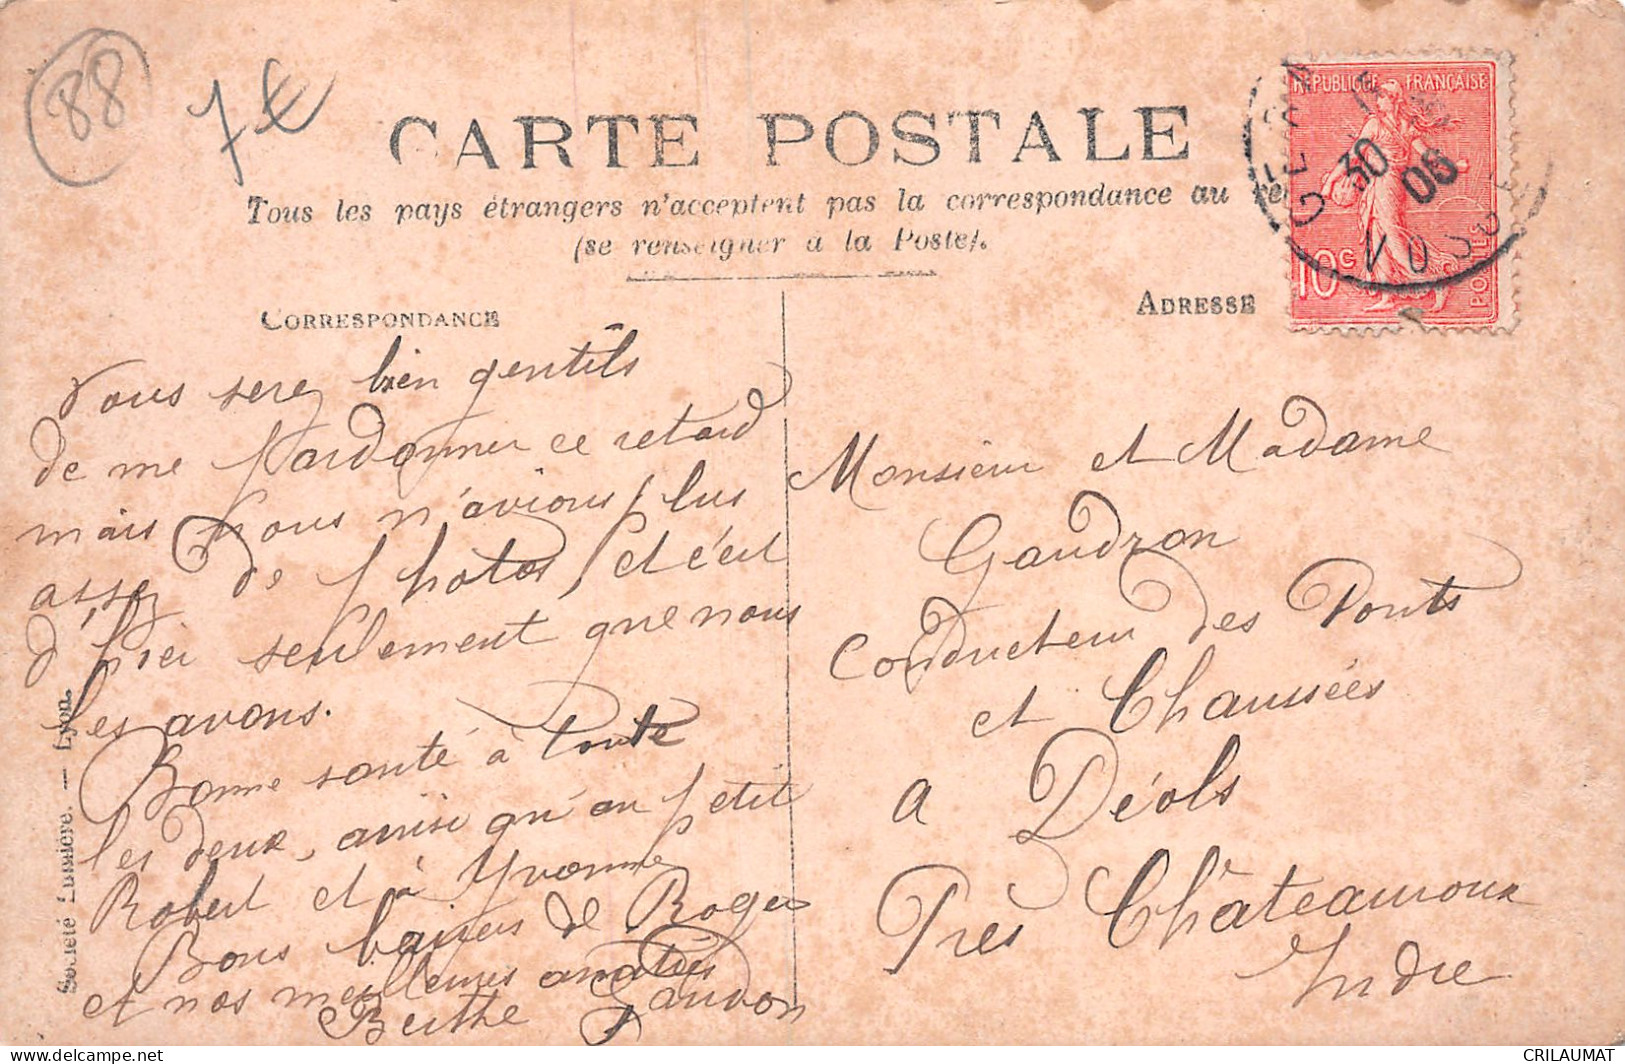 88
7€
CARTE POSTALE
Tous les pays étrangers n'acceptent pas la correspondance au
(se renseigner à la Poste).
RÉPUBLIQUE FRANÇAISE
10 c
POSTES
GERARD
30
06
VOSGES
CORRESPONDANCE
ADRESSE
Vous serez bien gentils
de me pardonner ce retard
mais nous n'avions plus
assez de photos, et c'est
d'hier seulement que nous
les avons.
Bonne santé à toute
les deux, ainsi qu'au petit
Robert et à Yvonne
Bons baisers de Roger
et nos meilleures amitiés
Berthe Gaudron
Monsieur et Madame
Gaudron
Conducteur des Ponts
et Chaussées
a Déols
Près Châteauroux
Indre
Société Lumière. — Lyon.
CRILAUMAT